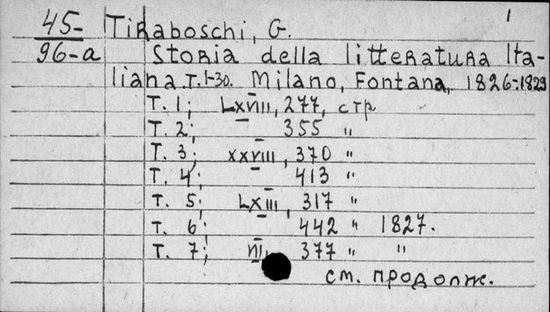 1
45-
96-a
Tiraboschi, G.
Storia della litteratura Ita-
liana. T. 1-30. Milano, Fontana, 1826-1829
T. 1; LXVIII, 277, стр
T. 2; 355 "
T. 3; XXVIII, 370 "
T. 4; 413 "
T. 5; LXIII, 317 "
T. 6; 442 " 1827.
T. 7; VII, 377 " "
см. продолж.